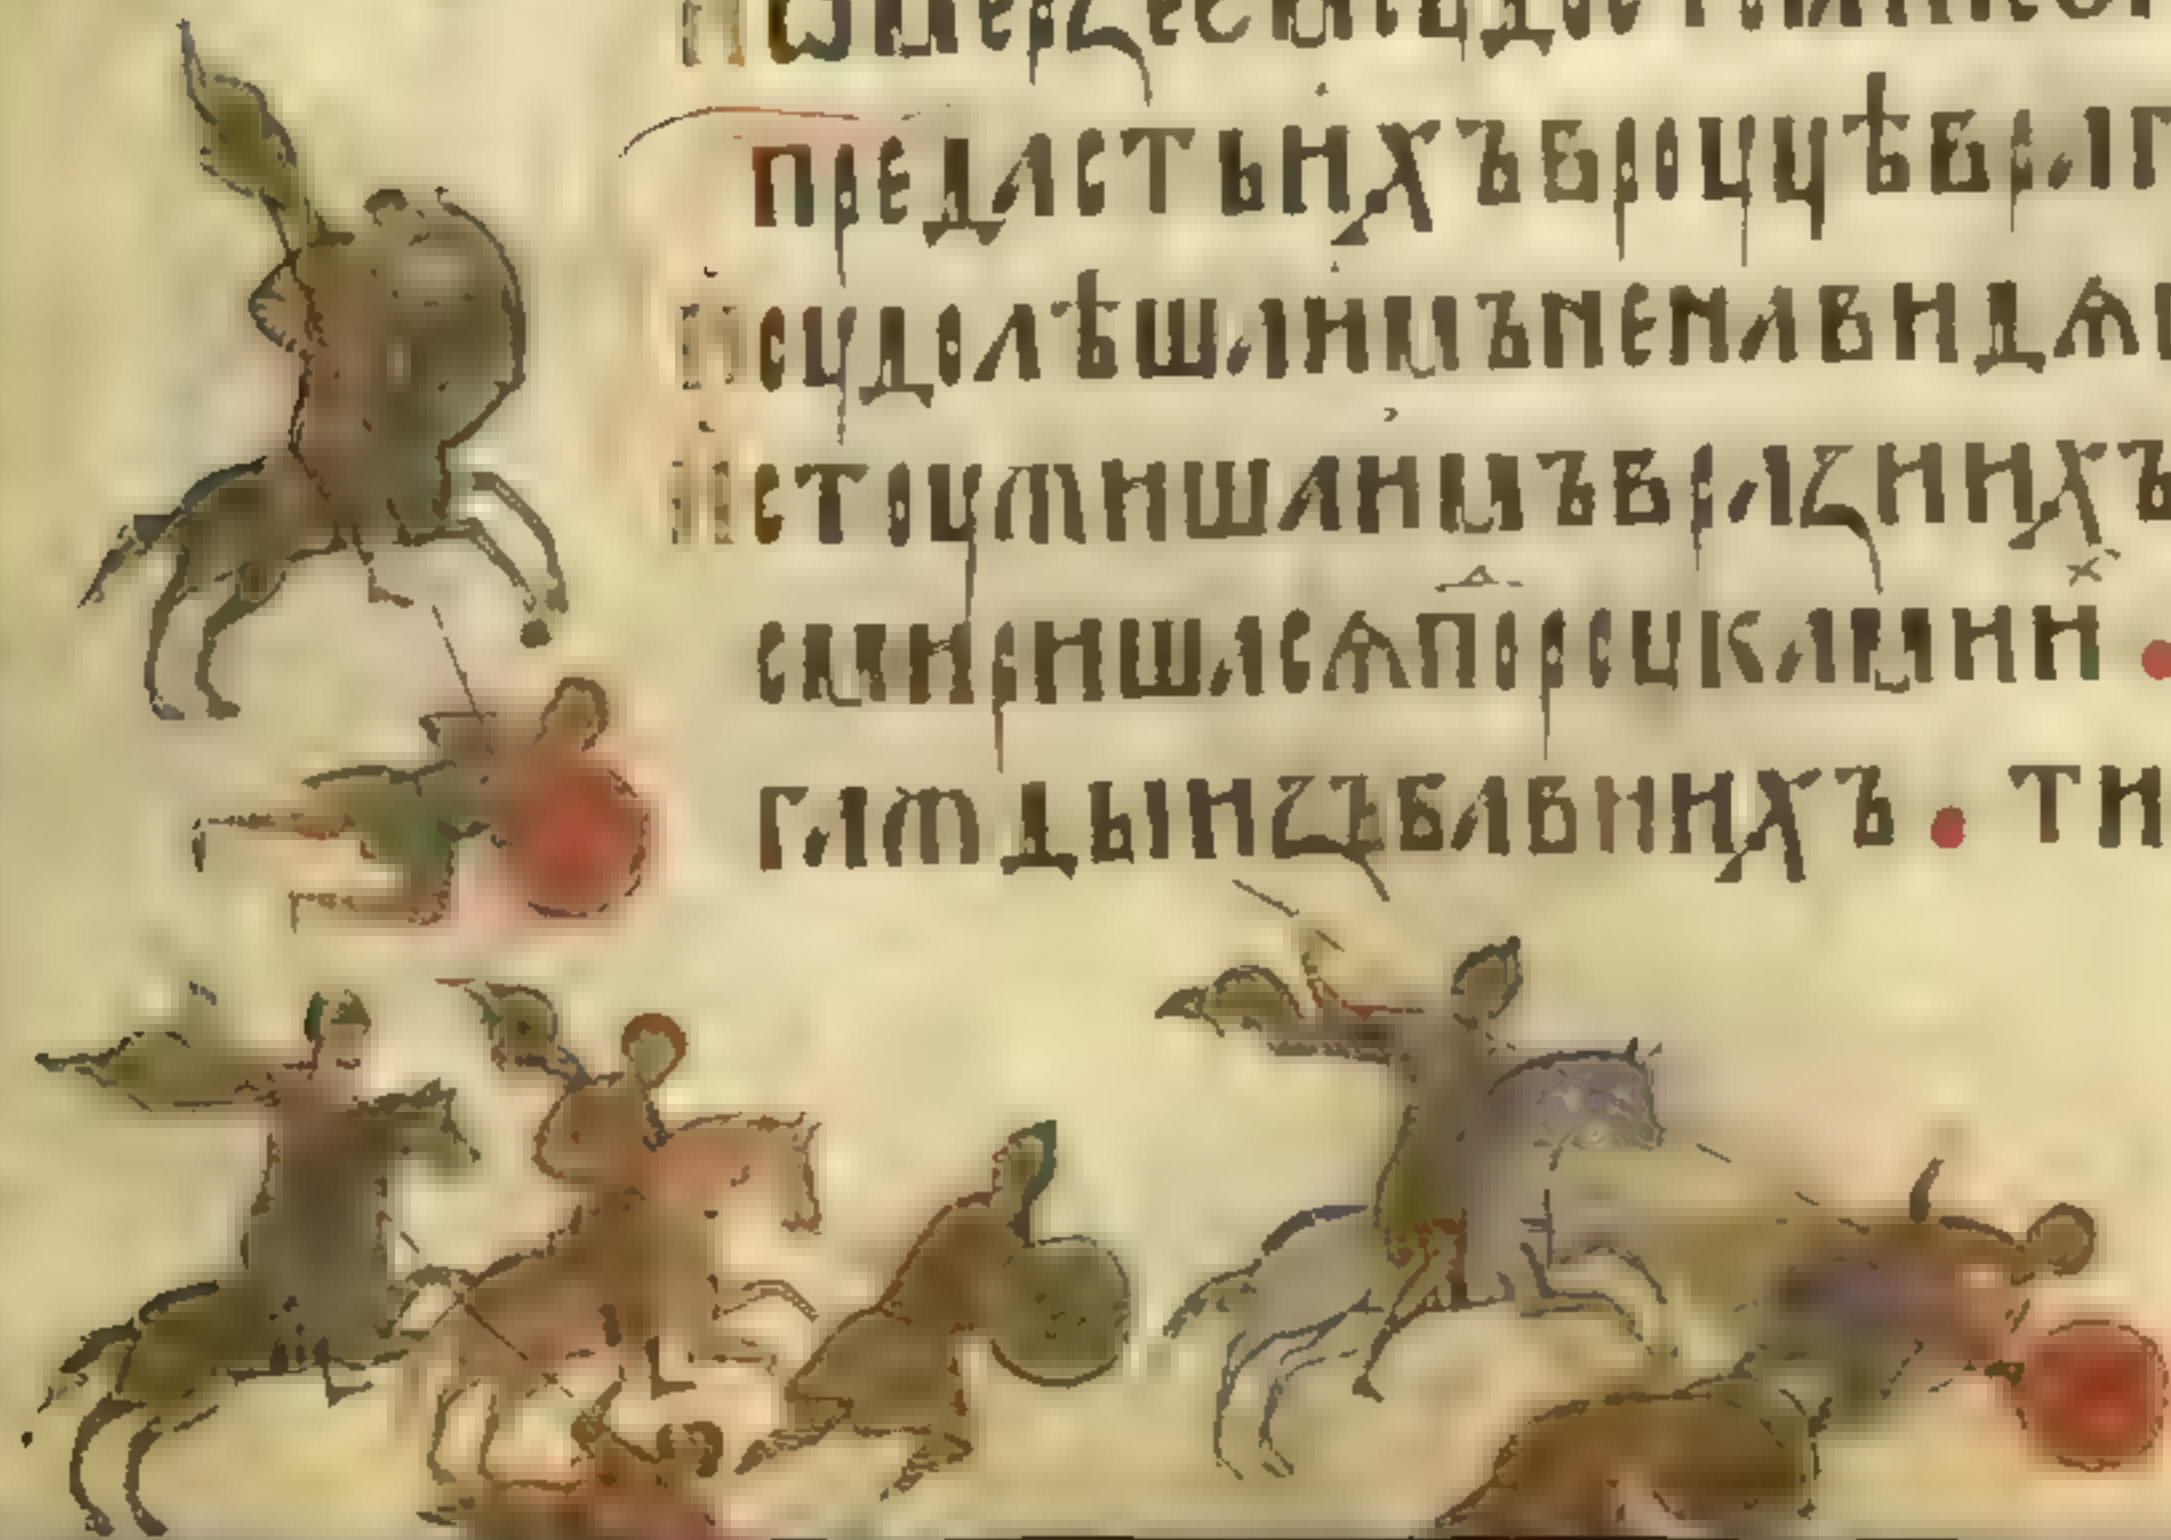 предастьихъвроуцѣвраг
иоудолѣшаимъненавидѧ
истоужишаимъвраꙁиихъ
смиришасѧпоⷣроукамииⷯ ·
гаждыиꙁбавиихъ · ти